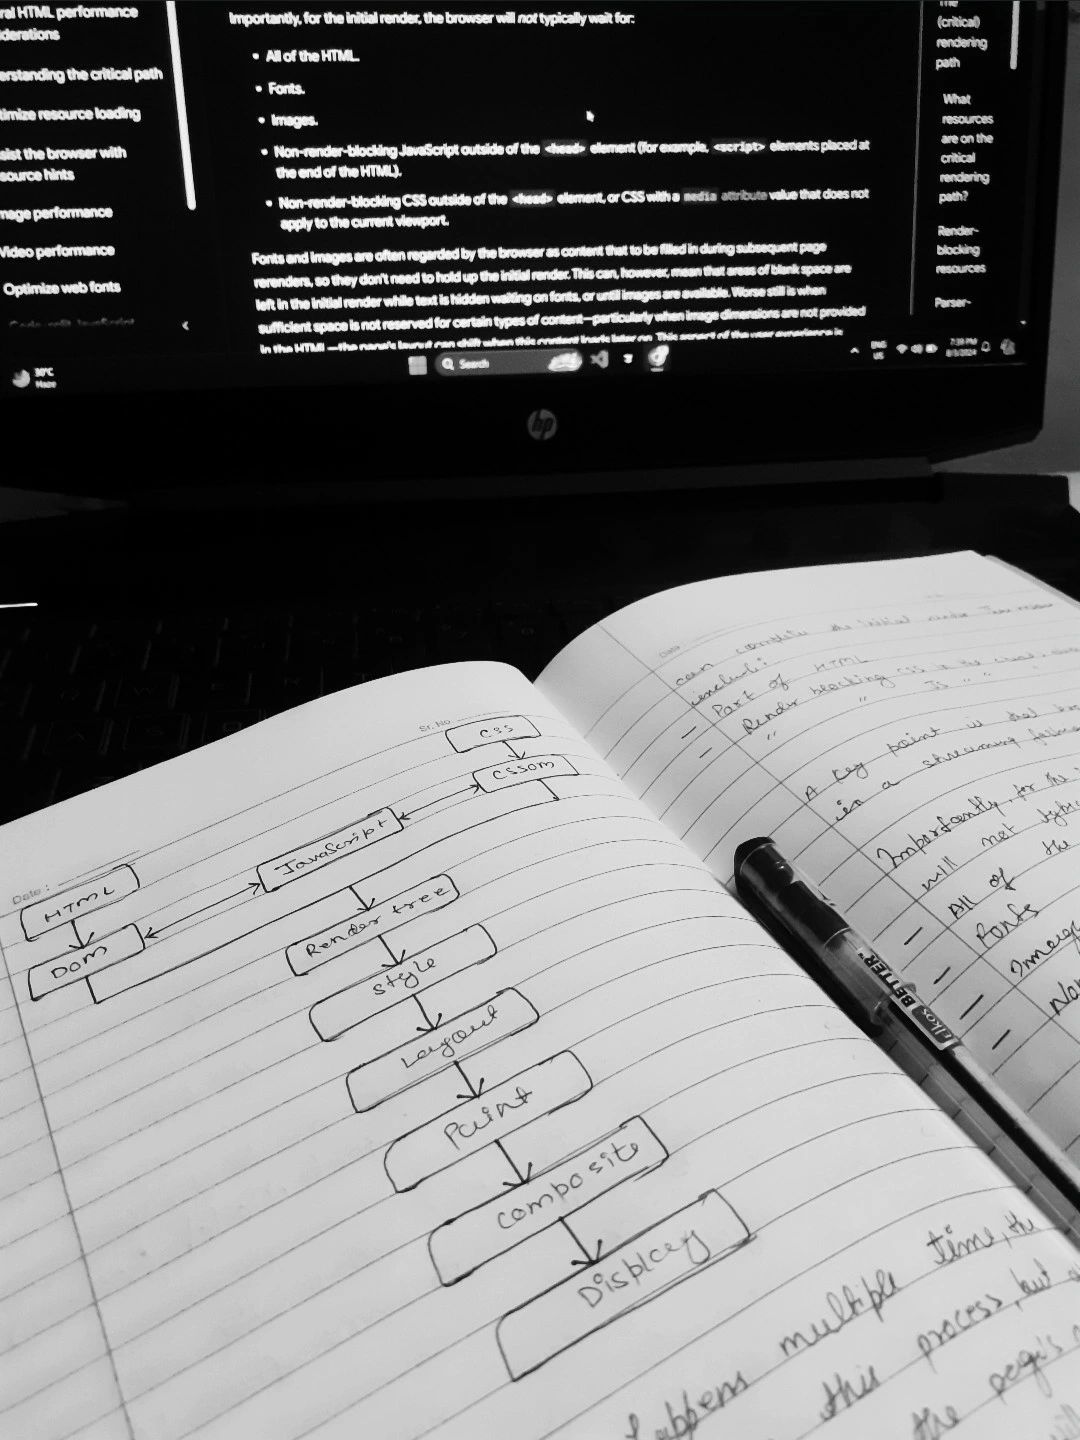 ral HTML performance
derations
erstanding the critical path
timize resource loading
sist the browser with
source hints
mage performance
Video performance
Optimize web fonts
Code-split JavaScript
Importantly, for the initial render, the browser will not typically wait for:
• All of the HTML.
• Fonts.
• Images.
• Non-render-blocking JavaScript outside of the <head> element (for example, <script> elements placed at
the end of the HTML).
• Non-render-blocking CSS outside of the <head> element, or CSS with a media attribute value that does not
apply to the current viewport.
Fonts and images are often regarded by the browser as content that to be filled in during subsequent page
rerenders, so they don't need to hold up the initial render. This can, however, mean that areas of blank space are
left in the initial render while text is hidden waiting on fonts, or until images are available. Worse still is when
sufficient space is not reserved for certain types of content—particularly when image dimensions are not provided
in the HTML—the page's layout can shift when this content loads later on. This aspect of the user experience is
The
(critical)
rendering
path
What
resources
are on the
critical
rendering
path?
Render-
blocking
resources
Parser-
30°C
Haze
Search
ENG
US
7:39 PM
8/3/2024
hp
Sr. No
CSS
CSSOM
JavaScript
Date :
HTML
DOM
Render tree
Style
Layout
Paint
Composite
Display
can complete the initial render
include:
- Part of HTML
- Render blocking CSS in the
" " JS " "
A key point is that
in a streaming
Importantly, for the
will not typic
- All of the
- Fonts
- Image
- Non
elkos BETTER
happens multiple time, the
this process, but
the page's